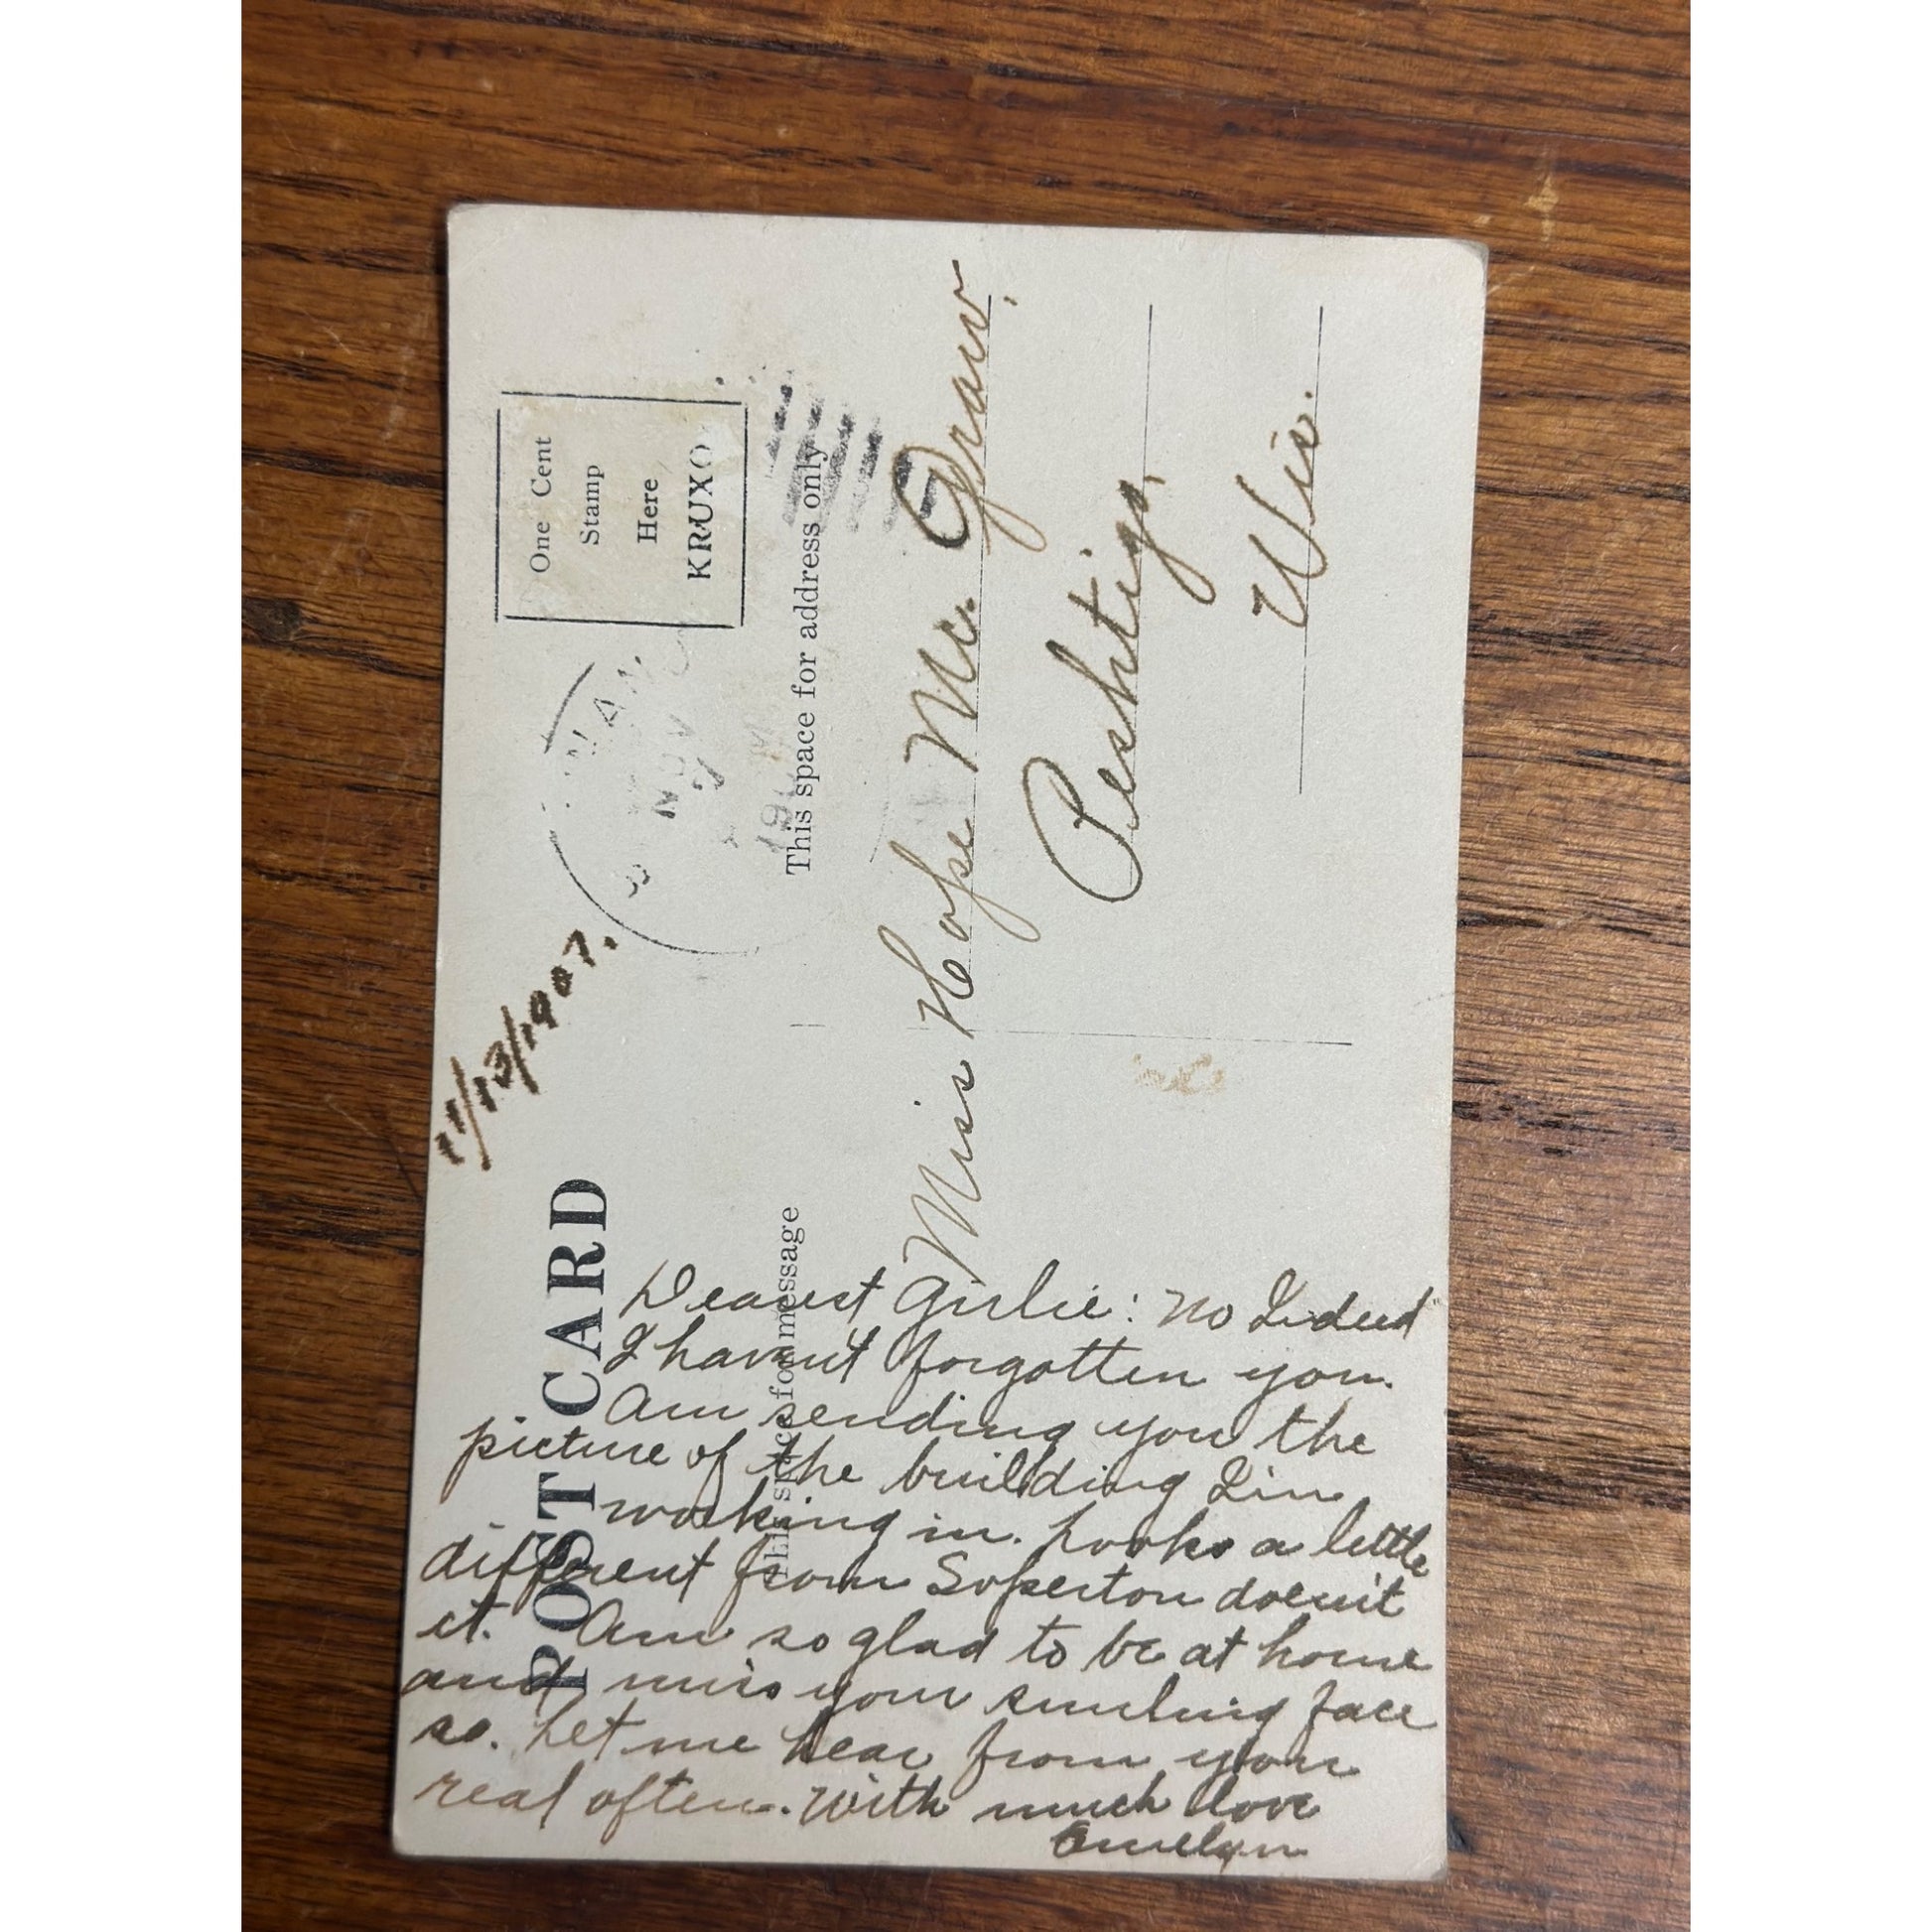 POST CARD
11/13/1907.
One Cent
Stamp
Here
KRUXO
NOV
This space for message
This space for address only
Miss Hope Mc. Graw.
Peshtigo,
Wis.
Dearest Girlie: No Indeed
I havent forgotten you.
Am sending you the
picture of the building I'm
working in. Looks a little
different from Soperton doesn't
it. Am so glad to be at home
and miss your smiling face
so. Let me hear from you
real often. With much love